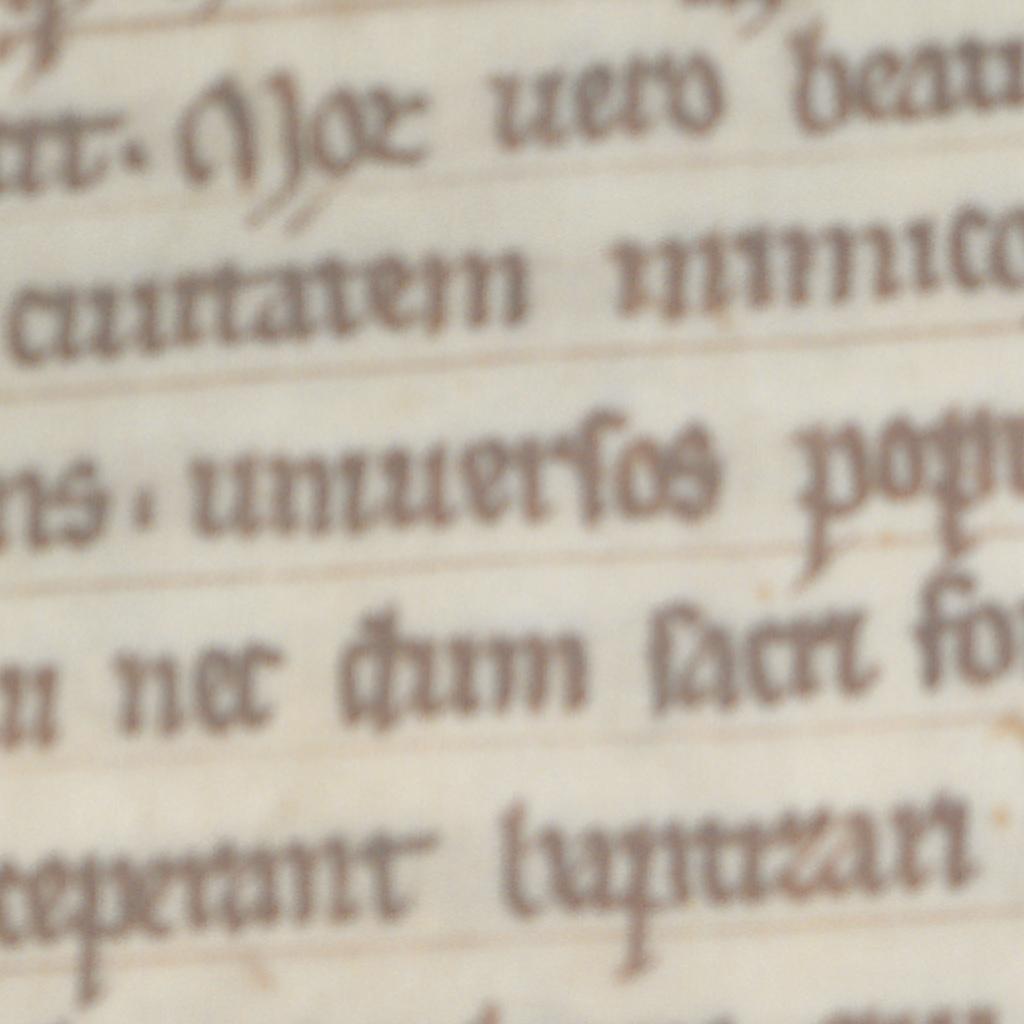 Mox uero beatu
ciuitatem inimico
ns. uniuersos popu
u nec dum sacri fo
ceperant baptizari